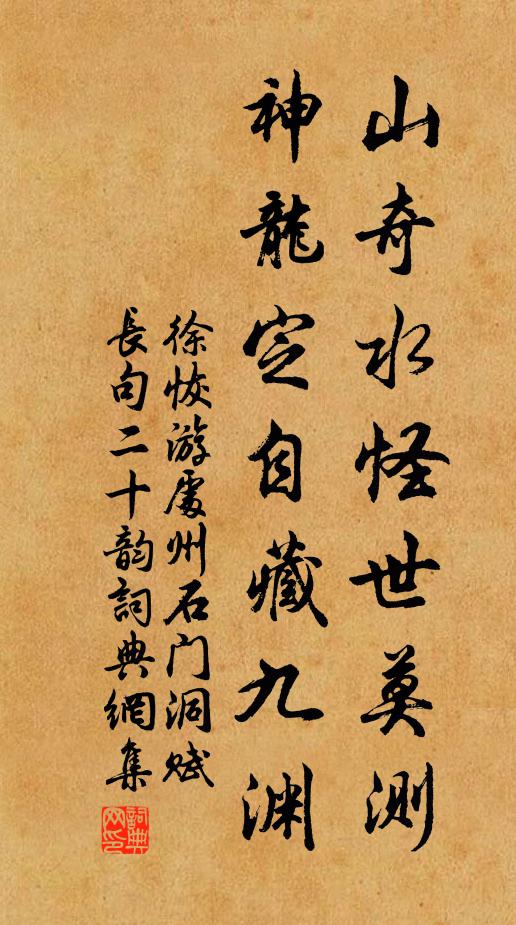 山奇水怪世莫测
神龍定自藏九渊
徐恢游處州石门洞赋
長句二十韵詞典網集
詞典
网印